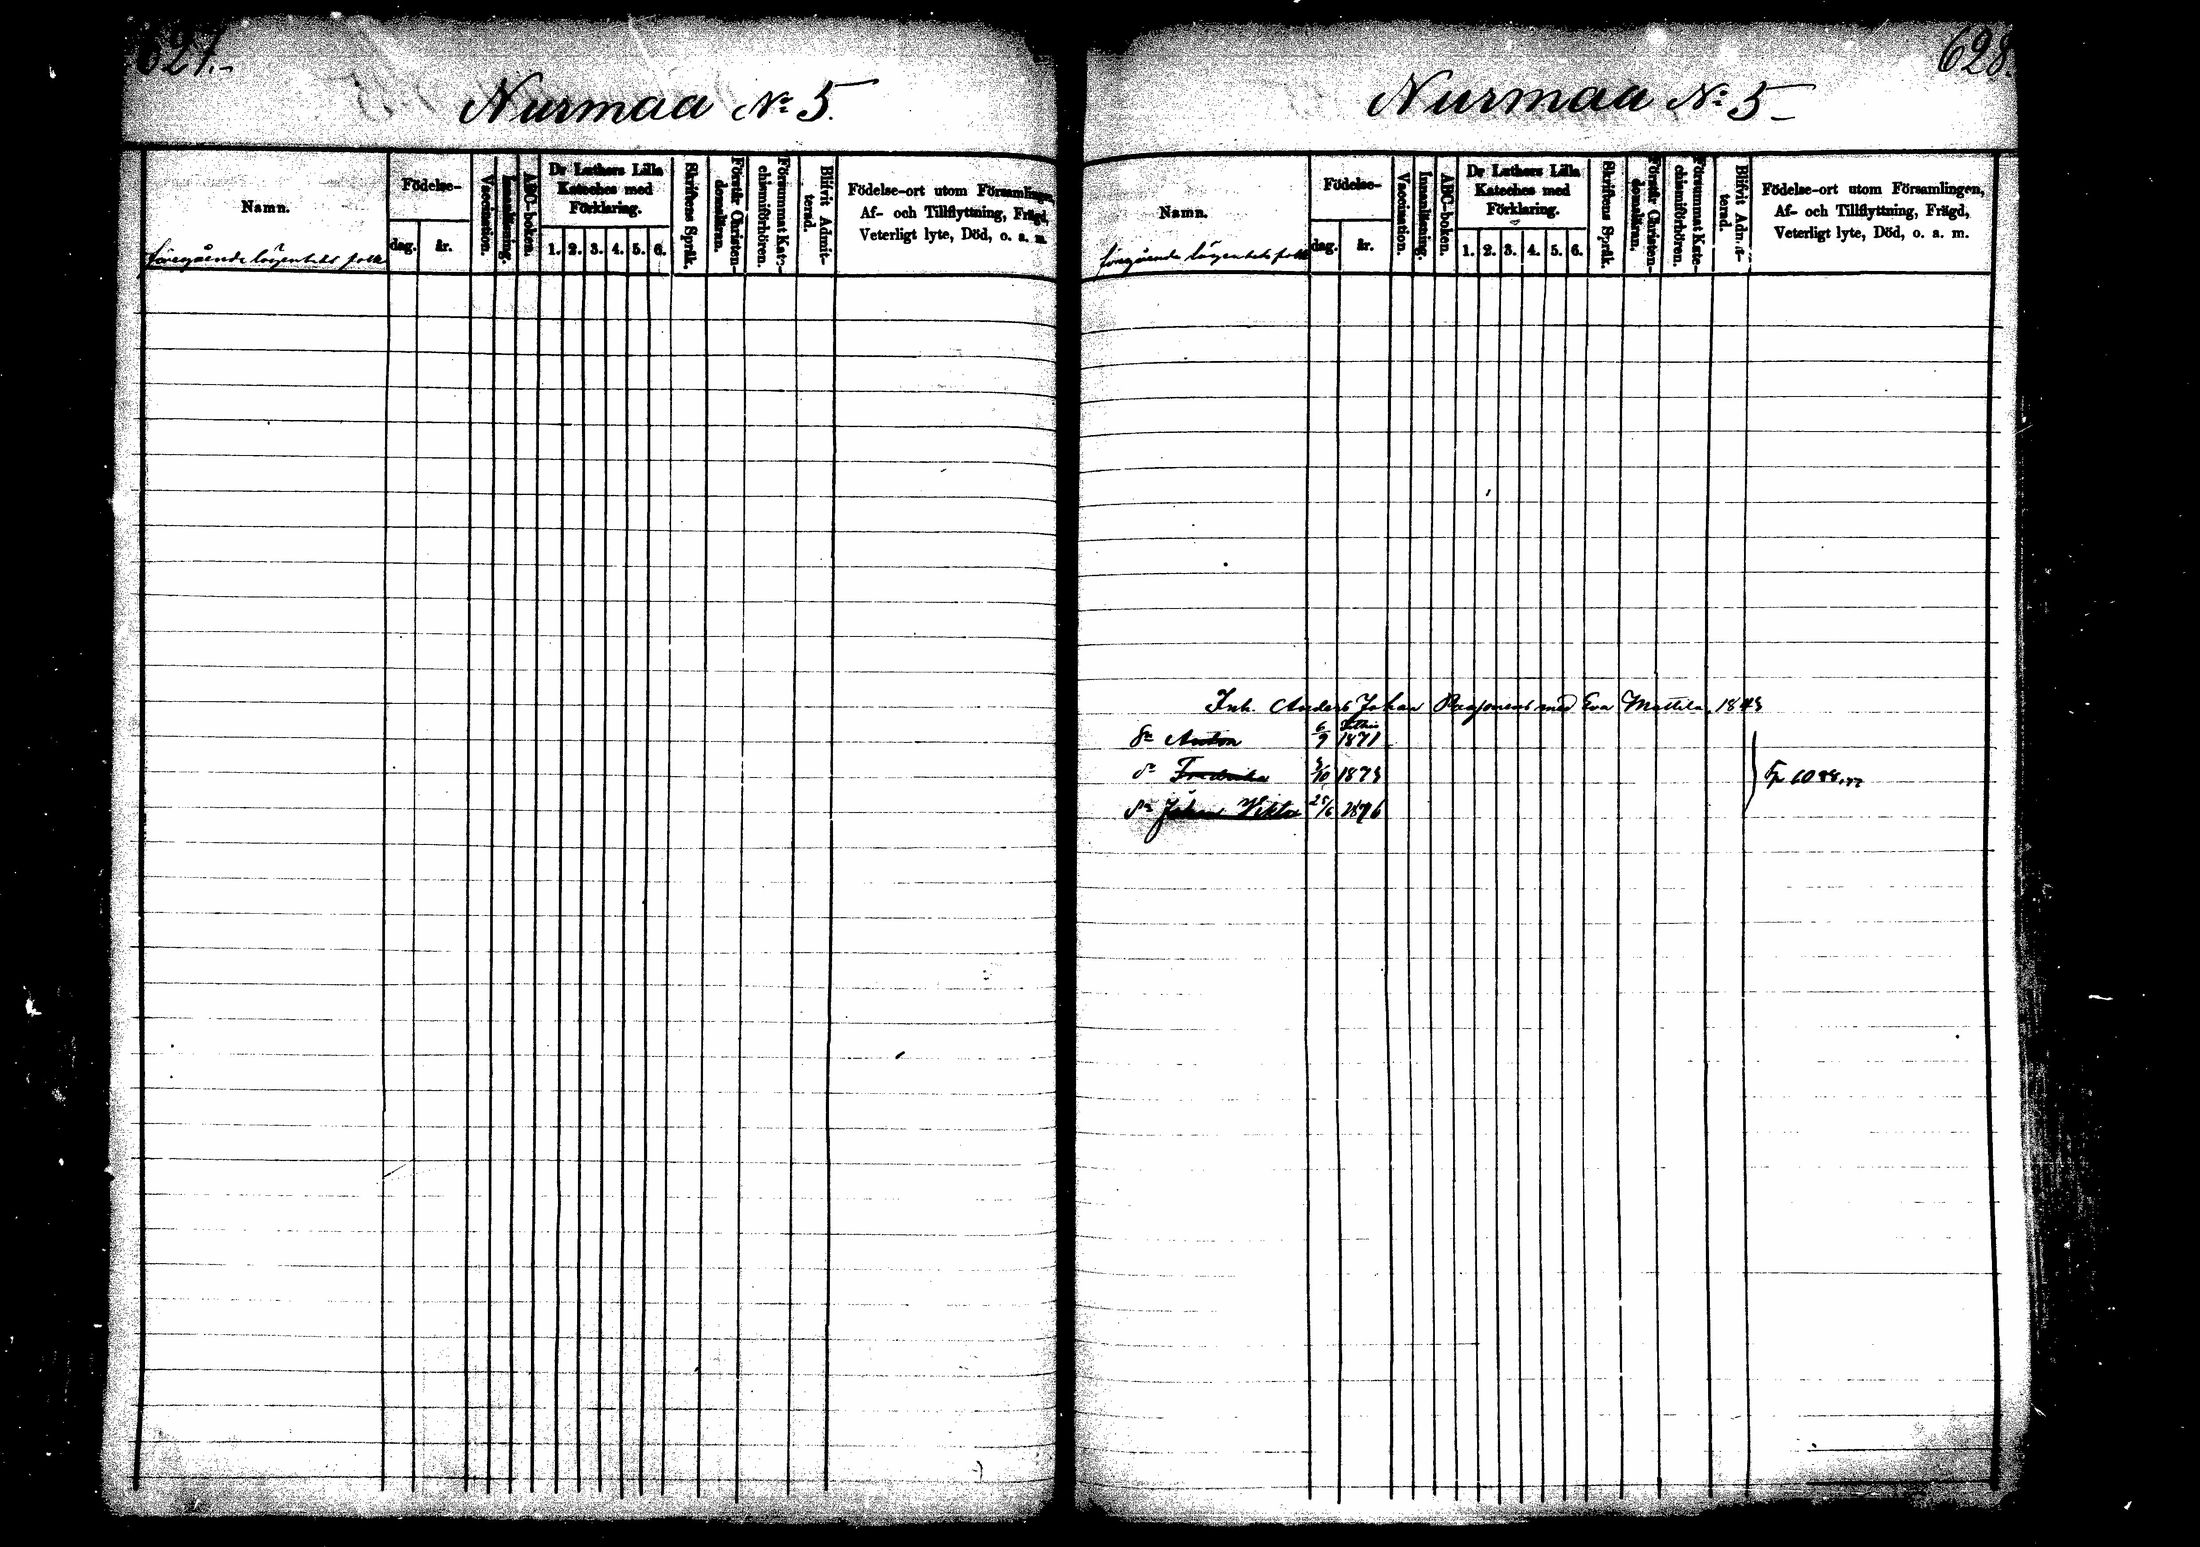 627.
Nurmaa No 5.
Namn.
Födelse-
dag. år.
Vaccination.
Innanläsning.
ABC-boken.
Dr Luthers Lilla
Kateches med
Förklaring.
1. 2. 3. 4. 5. 6.
Skriftens Språk.
Förstår Christen-
domsläran.
Försummat Kate-
chismiförhören.
Blifvit Admit-
terad.
Födelse-ort utom Församlingen,
Af- och Tillflyttning, Frägd,
Veterligt lyte, Död, o. a. m.
föregående lägenhets folk
628.
Nurmaa No 5
Namn.
Födelse-
dag. år.
Vaccination.
Innanläsning.
ABC-boken.
Dr Luthers Lilla
Kateches med
Förklaring.
1. 2. 3. 4. 5. 6.
Skriftens Språk.
Förstår Christen-
domsläran.
Försummat Kate-
chismiförhören.
Blifvit Admit-
terad.
Födelse-ort utom Församlingen,
Af- och Tillflyttning, Frägd,
Veterligt lyte, Död, o. a. m.
föregående lägenhets folk
Inh. Anders Johan med Eva 1843
Sn Anton 6/9 1871
Fredrika /10 1873
Sn Johan Viktor 25/6 1876